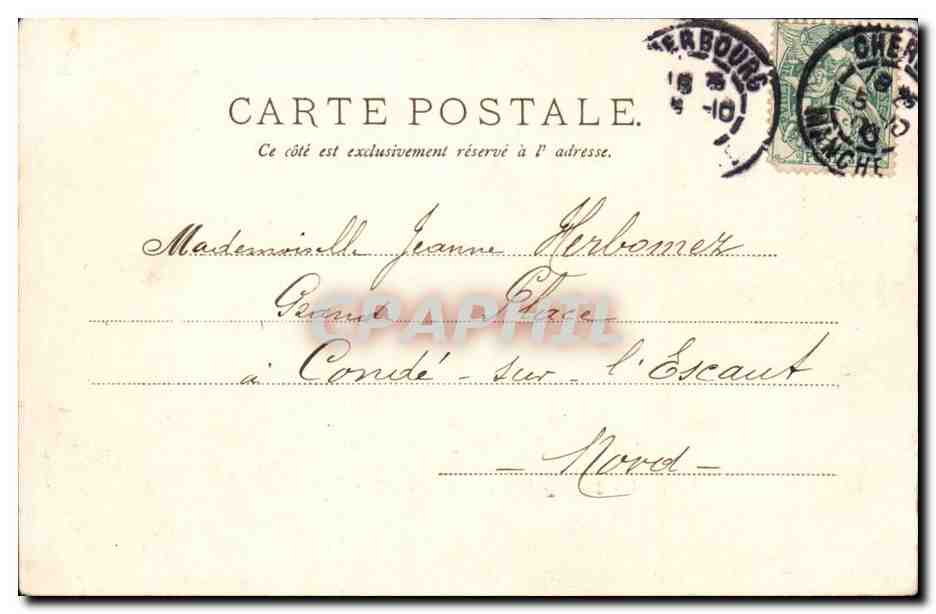 CHERBOURG
CHER
MANCHE
CARTE POSTALE.
Ce côté est exclusivement réservé à l' adresse.
Mademoiselle Jeanne Herbomez
Grand Place
à Condé - sur - l'Escaut
- Nord -
CPAPHIL